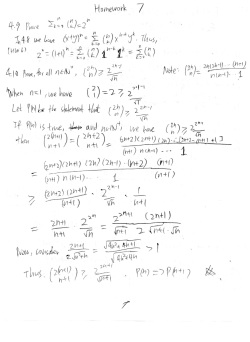 Homework 7
4.9 Prove Σ_{k=0}^{n} (n k) = 2^n
(x+y)^n = Σ_{k=0}^{n} (n k) x^{n-k} y^k. Thus,
2^n = (1+1)^n = Σ_{k=0}^{n} (n k) 1^{n-k} 1^k = Σ_{k=0}^{n} (n k)
4.10 Prove, for all n∈N*, (2n n) ≥ 2^{2n-1}/√n
Note: (2n n) =
When n=1, we have (2 1) = 2 ≥ 2^{2-1}/√1
Let P(n) be the statement that (2n n) ≥ 2^{2n-1}/√n
If P(n) is true, and n∈N*, we have (2n n) ≥ 2^{2n-1}/√n
then (2(n+1) n+1) = (2n+2 n+1) =
= (2n+2)(2n+1)(2n)(2n-1)…(n+2)/(n+1)n(n-1)…1 · (n+1)/(n+1)
≥ (2n+2)(2n+1)/(n+1) · 2^{2n-1}/√n · 1/(n+1)
= (2n+1)/(n+1) · 2^{2n}/√n = 2^{2n+1}/√(n+1) · (2n+1)/(2√(n+1)·√n)
consider (2n+1)/(2√(n²+n)) = √(4n²+4n+1)/√(4n²+4n) > 1
Thus, (2(n+1) n+1) ≥ 2^{2n+1}/√(n+1). P(n) => P(n+1)